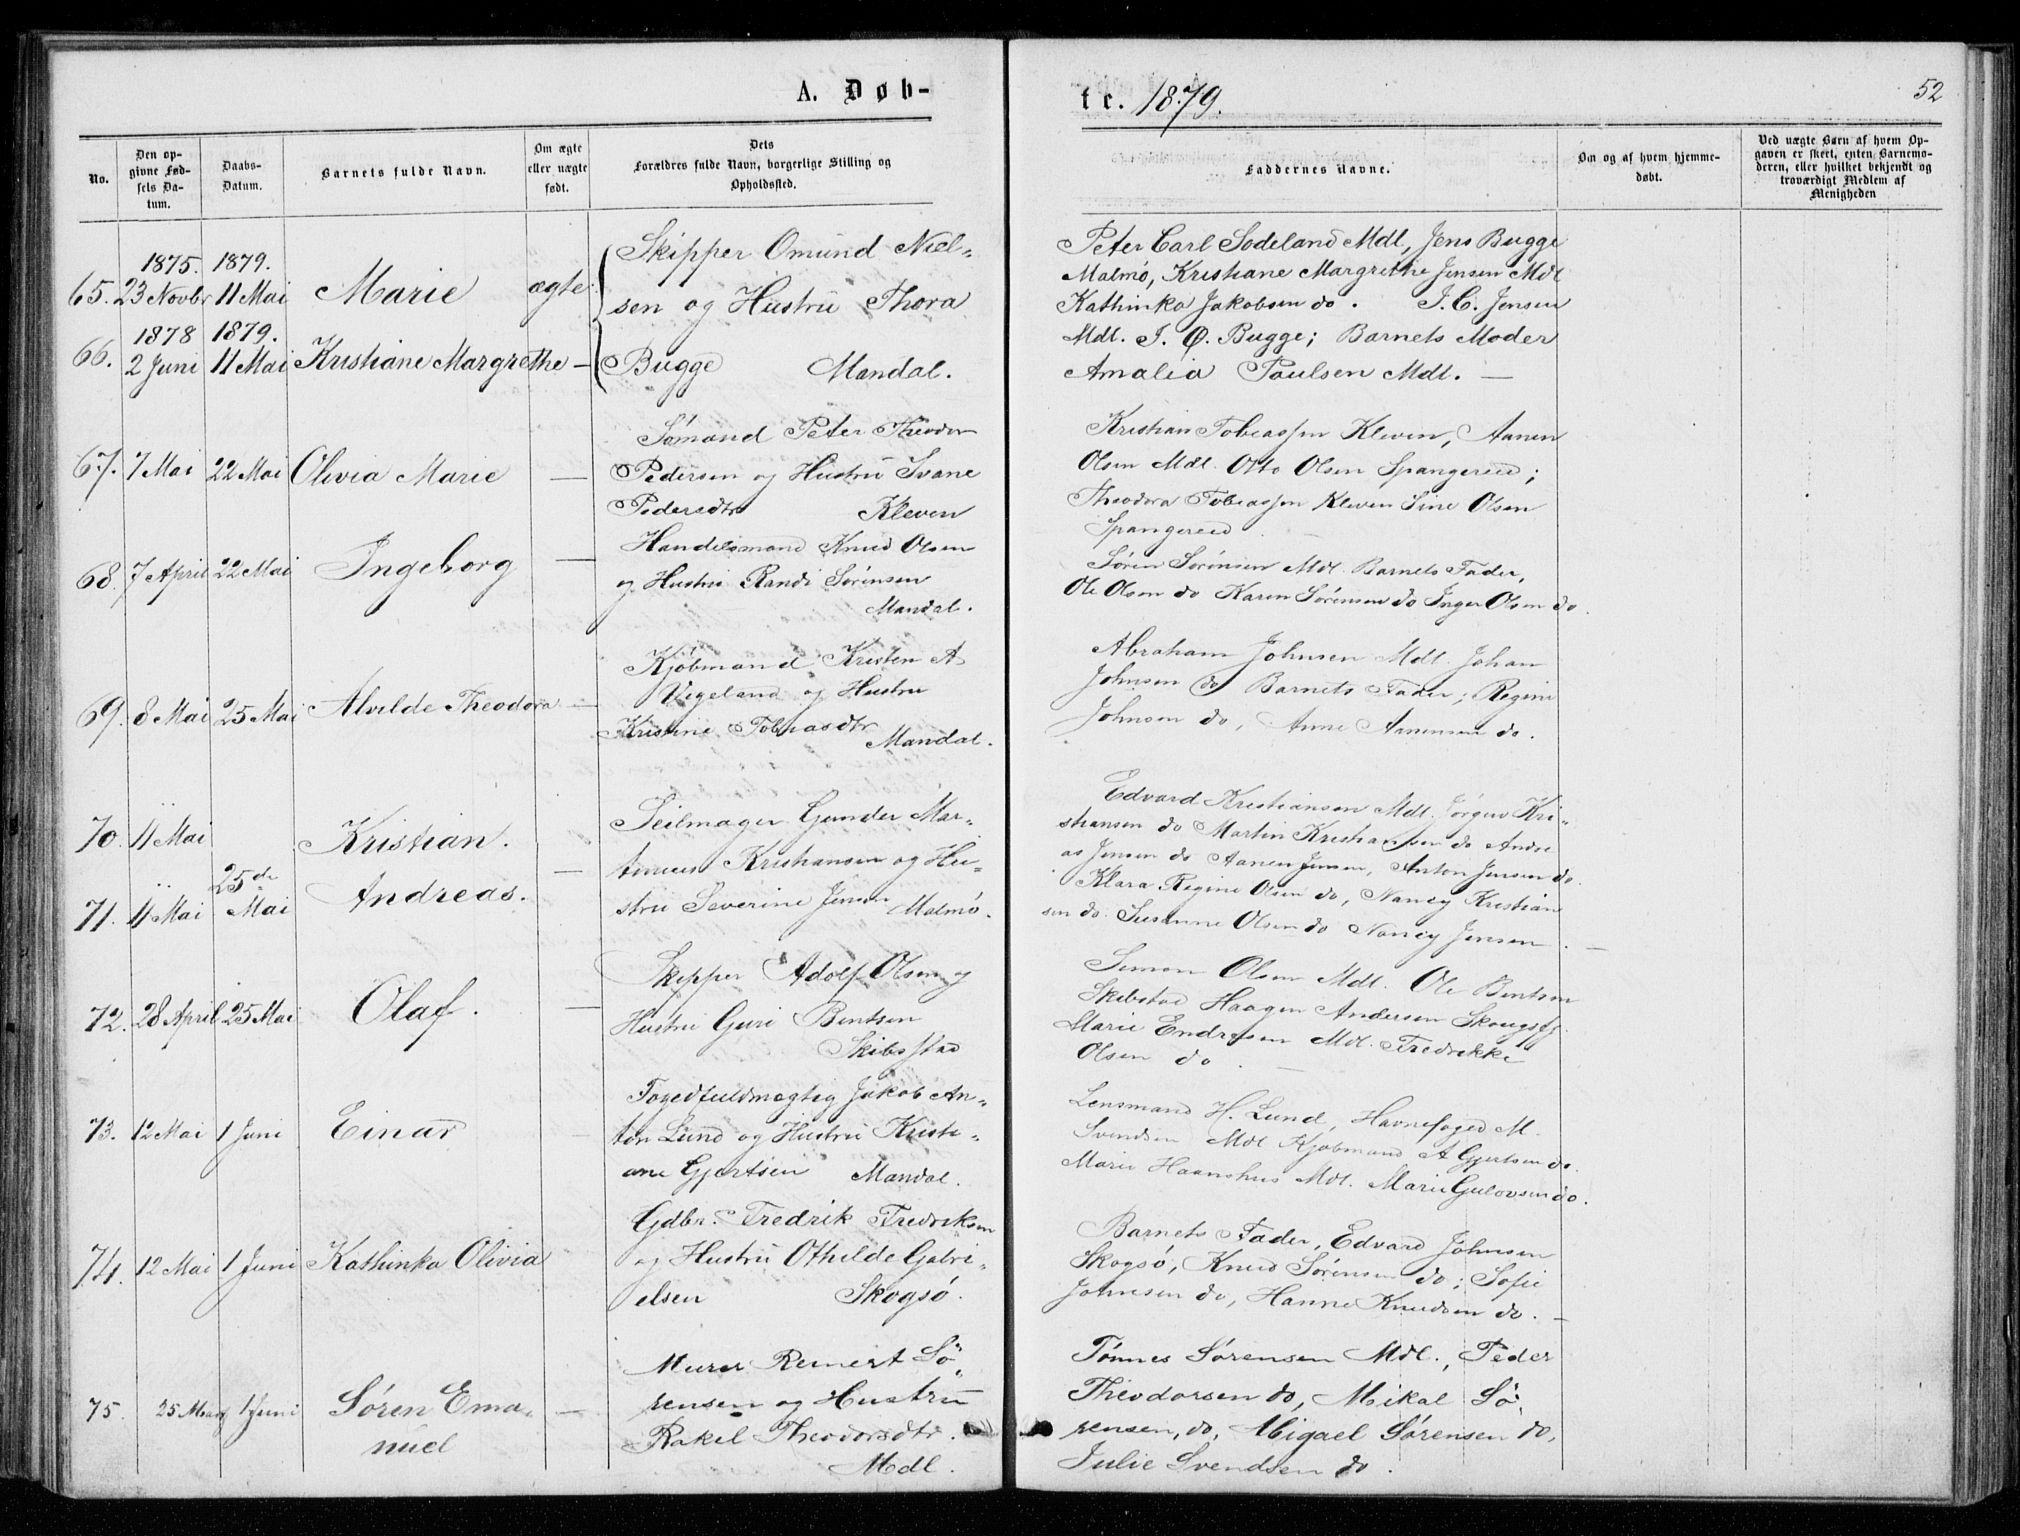 A. Døb-
No.
Den op-
givne Fød-
sels Da-
tum.
Daabs-
Datum.
Barnets fulde Navn.
Om ægte
eller uægte
født.
Dets
Forældres fulde Navn, borgerlige Stilling og
Opholdssted.
65. 1875. 23 Novbr 1879. 11 Mai Marie ægte
Skipper Omund Niel-
sen og Hustru Thora
66. 1878 2 Juni 1879. 11 Mai Kristiane Margrethe —
Bugge Mandal.
67. 7 Mai 22 Mai Olivia Marie —
Sømand Peter Theodor
Pedersen og Hustru Svane
Pedersdtr Kleven
68. 7 April 22 Mai Ingeborg —
Handelsmand Knud Olsen
og Hustru Randi Sørensen
Mandal.
69. 8 Mai 25 Mai Alvilde Theodora —
Kjøbmand Kristen A
Vigeland og Hustru
Kristine Tobiasdtr
Mandal.
70. 11 Mai Kristian.
Seilmager Gunder Mar-
tinius Kristiansen og Hu-
71. 11 Mai 25de Mai Andreas. —
stru Severine Jensen Malmø.
72. 28 April 25 Mai Olaf. —
Skipper Adolf Olsen og
Hustru Guri Bentsen
Skibsstad
73. 12 Mai 1 Juni Einar
Fogedfuldmægtig Jakob An-
ton Lund og Hustru Kristi-
ane Gjertsen Mandal.
74. 12 Mai 1 Juni Kathinka Olivia
Gdbr. Fredrik Fredriksen
og Hustru Othilde Gabri-
elsen Skogsø.
75. 25 Marts 1 Juni Søren Ema-
nuel —
Murer Reinert Sø-
rensen og Hustru
Rakel Theodorsdtr.
Mdl.
te. 1879.
52
Faddernes Navne.
Om og af hvem hjemme-
døbt.
Ved uægte Børn af hvem Op-
gaven er skeet, enten Barnemo-
deren, eller hvilket bekjendt og
troværdigt Medlem af
Menigheden
Peter Carl Sodeland Mdl, Jens Bugge
Malmø, Kristiane Margrethe Jensen Mdl
Kathinka Jakobsen do. J. C. Jensen
Mdl. J. Ø. Bugge; Barnets Moder
Amalia Paulsen Mdl. —
Kristian Tobiassen Kleven, Aanen
Olsen Mdl. Otto Olsen Spangereid;
Theodora Tobiassen Kleven Sine Olsen
Spangereid
Søren Sørensen Mdl. Barnets Fader,
Ole Olsen do Karen Sørensen do Inger Olsen do.
Abraham Johnsen Mdl. Johan
Johnsen do Barnets Fader; Regine
Johnsen do, Anne Aanensen do.
Edvard Kristiansen Mdl. Jørgen Kri-
stiansen do Martin Kristiansen do Andre
as Jensen do Aanen Jensen, Anton Jensen do.
Klara Regine Olsen do, Nancy Kristian
sen do. Susanne Olsen do Nancy Jensen. —
Simon Olsen Mdl. Ole Bentsen
Skibstad Haagen Andersen
Marie Endresen Mdl. Fredrikke
Olsen do. —
Lensmand H. Lund, Havnefoged M.
Svendsen Mdl Kjøbmand A Gjertsen do.
Marie Haanshus Mdl. Marie Gulovsen do.
Barnets Fader, Edvard Johnsen
Skogsø, Knud Sørensen do; Sofie
Johnsen do, Hanne Knudsen do. —
Tønnes Sørensen Mdl., Peder
Theodorsen do, Mikal Sø-
rensen, do, Abigael Sørensen do,
Julie Svendsen do.